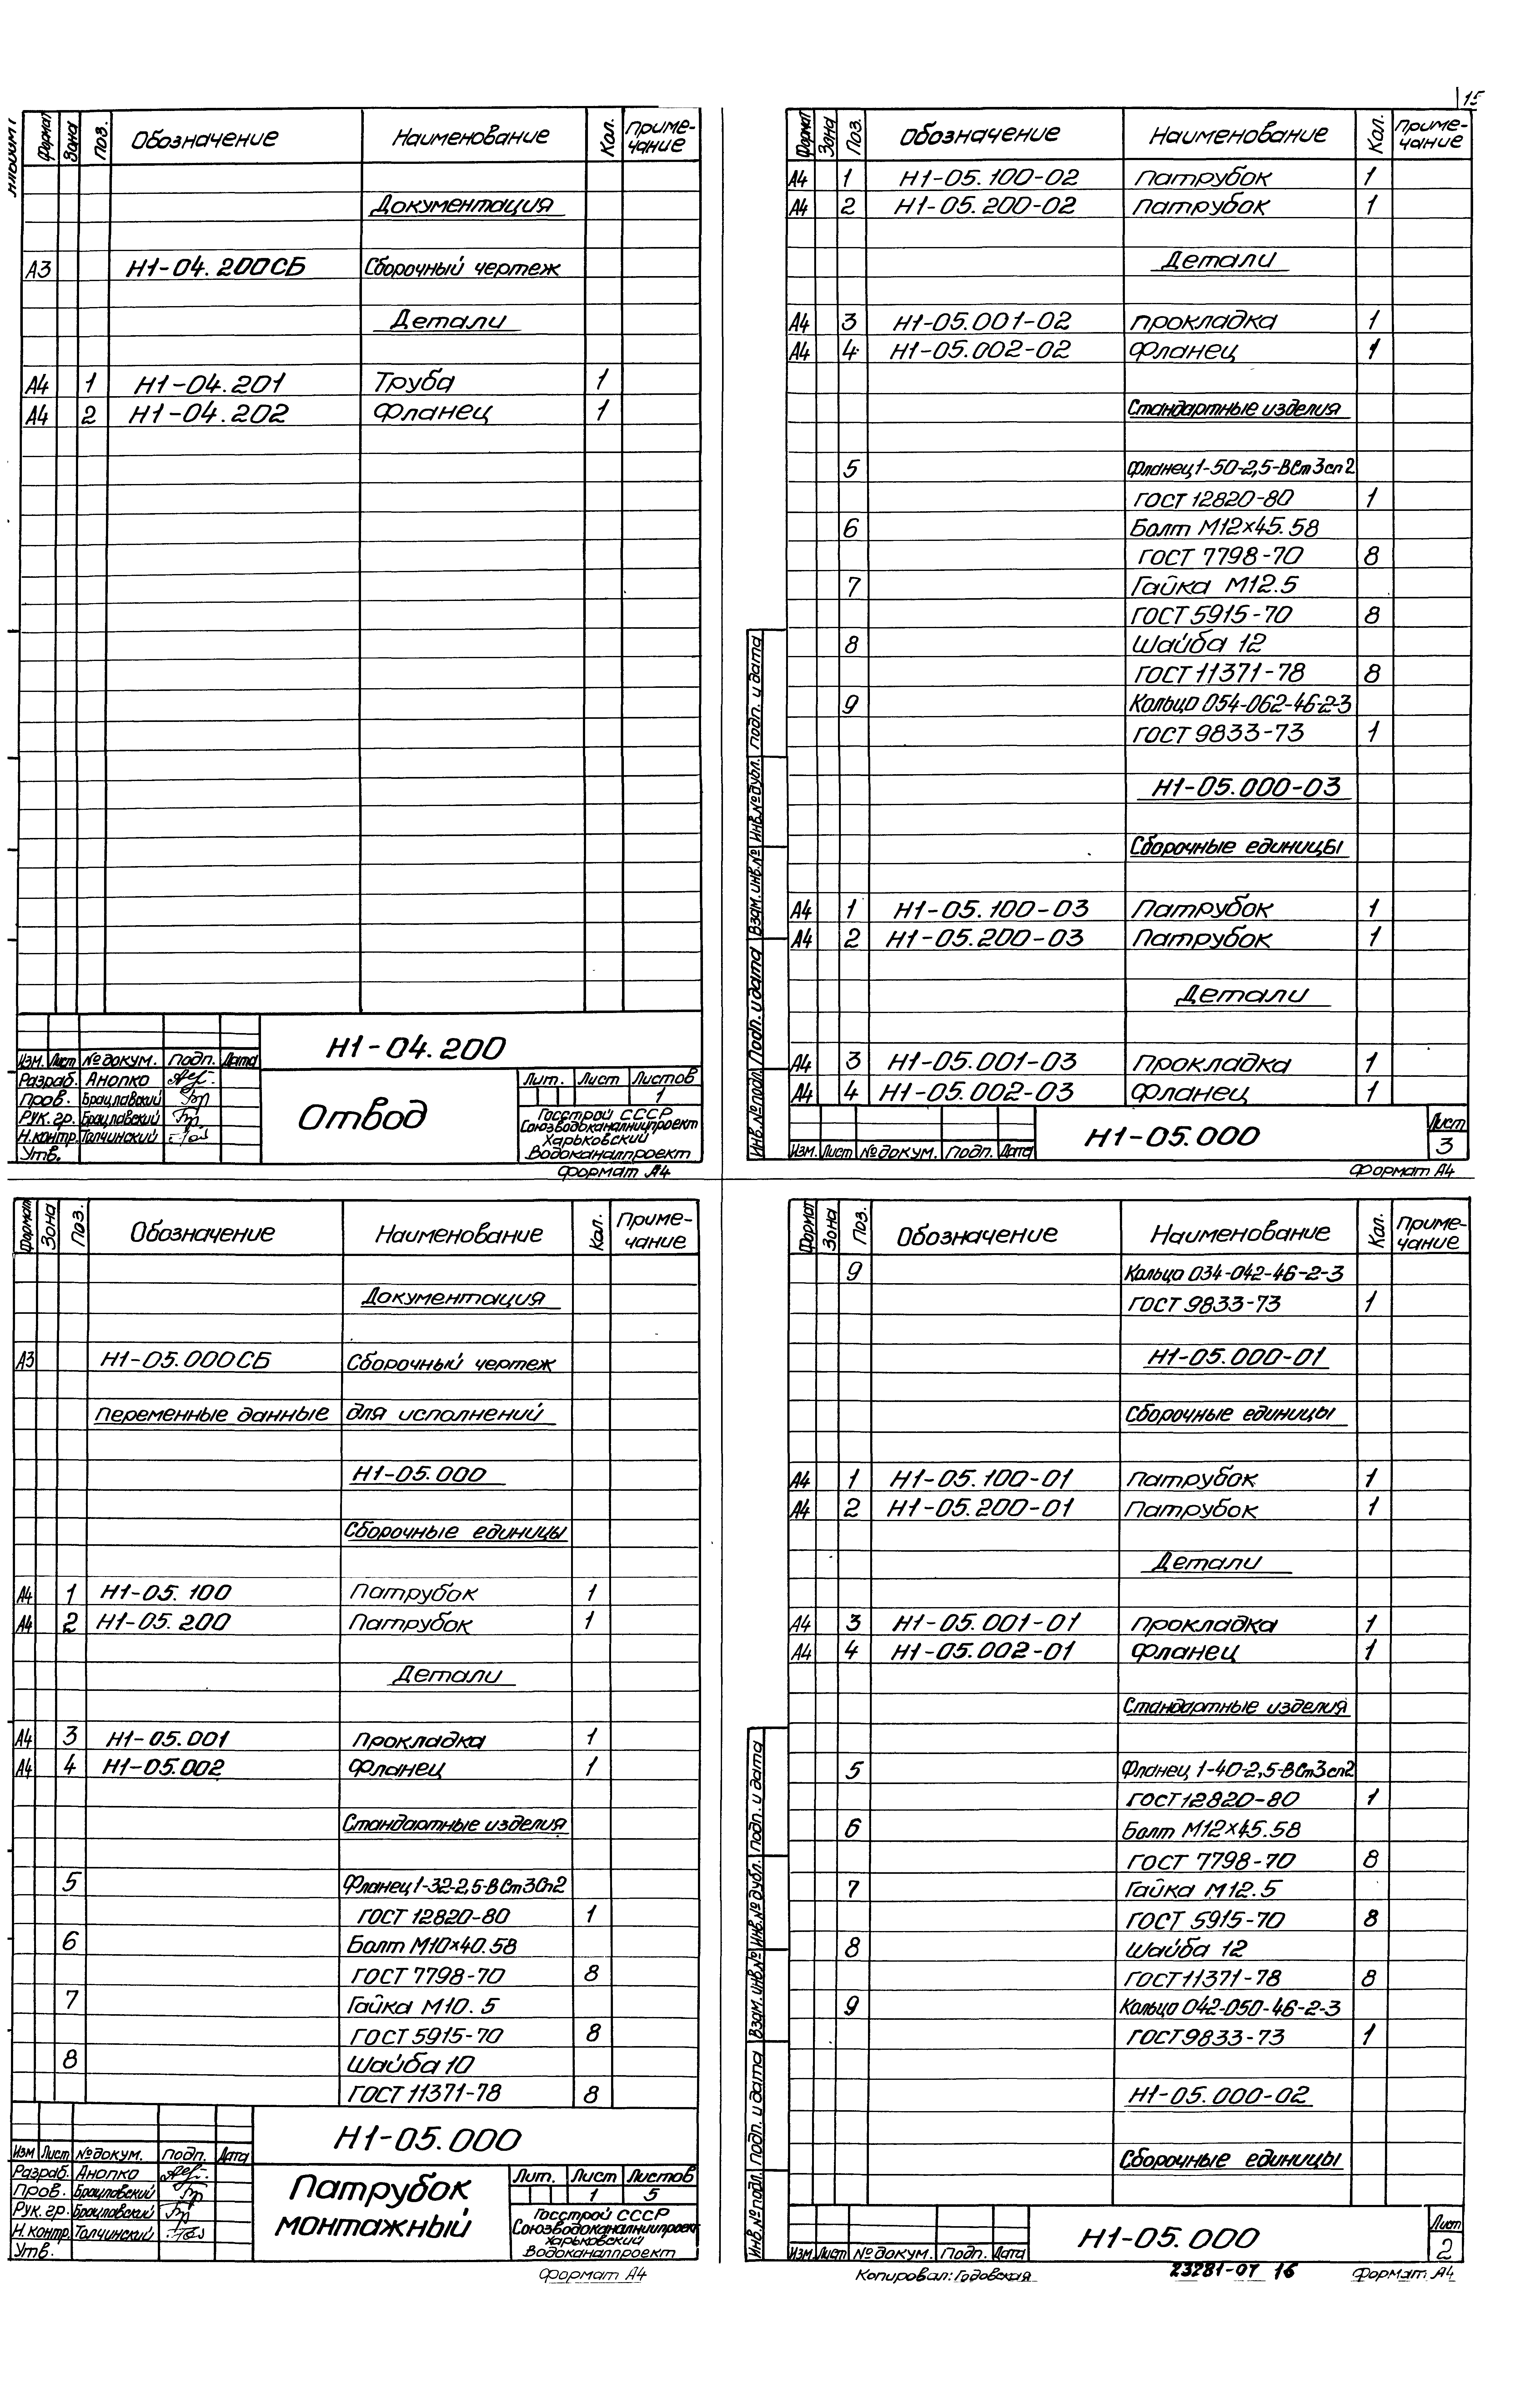 15
Формат Зона Поз. Обозначение Наименование Кол. Приме-
чание
Документация
А3 Н1-04.200СБ Сборочный чертеж
Детали
А4 1 Н1-04.201 Труба 1
А4 2 Н1-04.202 Фланец 1
Н1-04.200
Изм. Лист № докум. Подп. Дата
Разраб. Анопко
Пров. Брацлавский
Рук. гр. Брацлавский
Н.контр. Толчинский
Утв.
Отвод
Лит. Лист Листов
1
Госстрой СССР
Союзводоканалниипроект
Харьковский
Водоканалпроект
Формат А4
Формат Зона Поз. Обозначение Наименование Кол. Приме-
чание
А4 1 Н1-05.100-02 Патрубок 1
А4 2 Н1-05.200-02 Патрубок 1
Детали
А4 3 Н1-05.001-02 Прокладка 1
А4 4 Н1-05.002-02 Фланец 1
Стандартные изделия
5 Фланец 1-50-2,5-ВСт3сп2
ГОСТ 12820-80 1
6 Болт М12×45.58
ГОСТ 7798-70 8
7 Гайка М12.5
ГОСТ 5915-70 8
8 Шайба 12
ГОСТ 11371-78 8
9 Кольцо 054-062-46-2-3
ГОСТ 9833-73 1
Н1-05.000-03
Сборочные единицы
А4 1 Н1-05.100-03 Патрубок 1
А4 2 Н1-05.200-03 Патрубок 1
Детали
А4 3 Н1-05.001-03 Прокладка 1
А4 4 Н1-05.002-03 Фланец 1
Инв.№ подл. Подп. и дата Взам. инв.№ Инв.№ дубл. Подп. и дата
Изм. Лист № докум. Подп. Дата
Н1-05.000
Лист
3
Формат А4
Формат Зона Поз. Обозначение Наименование Кол. Приме-
чание
Документация
А3 Н1-05.000СБ Сборочный чертеж
Переменные данные для исполнений
Н1-05.000
Сборочные единицы
А4 1 Н1-05.100 Патрубок 1
А4 2 Н1-05.200 Патрубок 1
Детали
А4 3 Н1-05.001 Прокладка 1
А4 4 Н1-05.002 Фланец 1
Стандартные изделия
5 Фланец 1-32-2,5-ВСт3Сп2
ГОСТ 12820-80 1
6 Болт М10×40.58
ГОСТ 7798-70 8
7 Гайка М10.5
ГОСТ 5915-70 8
8 Шайба 10
ГОСТ 11371-78 8
Н1-05.000
Изм Лист № докум. Подп. Дата
Разраб. Анопко
Пров. Брацлавский
Рук. гр. Брацлавский
Н.контр. Толчинский
Утв.
Патрубок
монтажный
Лит. Лист Листов
1 5
Госстрой СССР
Союзводоканалниипроект
Харьковский
Водоканалпроект
Формат А4
Формат Зона Поз. Обозначение Наименование Кол. Приме-
чание
9 Кольцо 034-042-46-2-3
ГОСТ 9833-73 1
Н1-05.000-01
Сборочные единицы
А4 1 Н1-05.100-01 Патрубок 1
А4 2 Н1-05.200-01 Патрубок 1
Детали
А4 3 Н1-05.001-01 Прокладка 1
А4 4 Н1-05.002-01 Фланец 1
Стандартные изделия
5 Фланец 1-40-2,5-ВСт3сп2
ГОСТ 12820-80 1
6 Болт М12×45.58
ГОСТ 7798-70 8
7 Гайка М12.5
ГОСТ 5915-70 8
8 Шайба 12
ГОСТ 11371-78 8
9 Кольцо 042-050-46-2-3
ГОСТ 9833-73 1
Н1-05.000-02
Сборочные единицы
Инв.№ подл. Подп. и дата Взам. инв.№ Инв.№ дубл. Подп. и дата
Изм. Лист № докум. Подп. Дата
Н1-05.000
Лист
2
Копировал: Годовская 23281-07 16 Формат А4